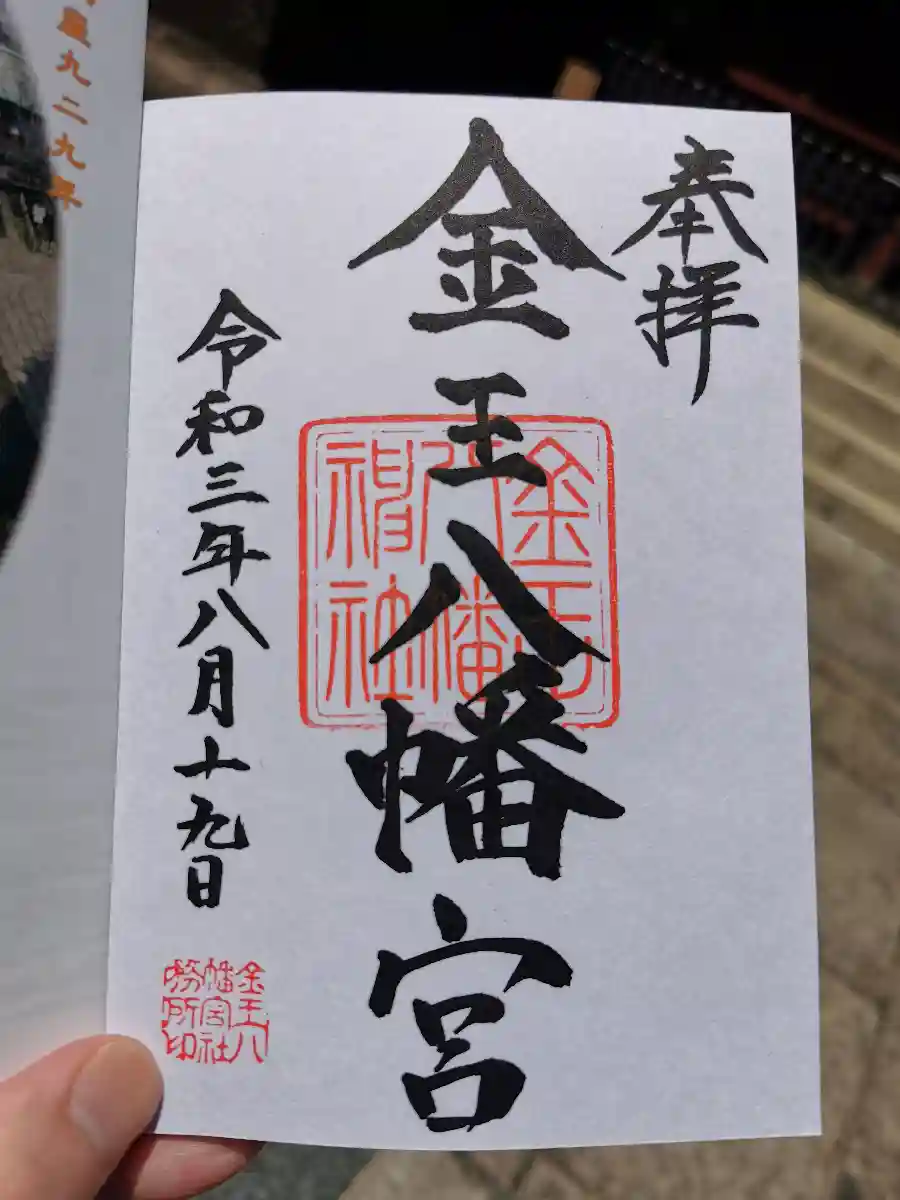 奉拝
金王八幡宮
金王八幡神社
令和三年八月十九日
金王八幡宮社務所印
九二九年